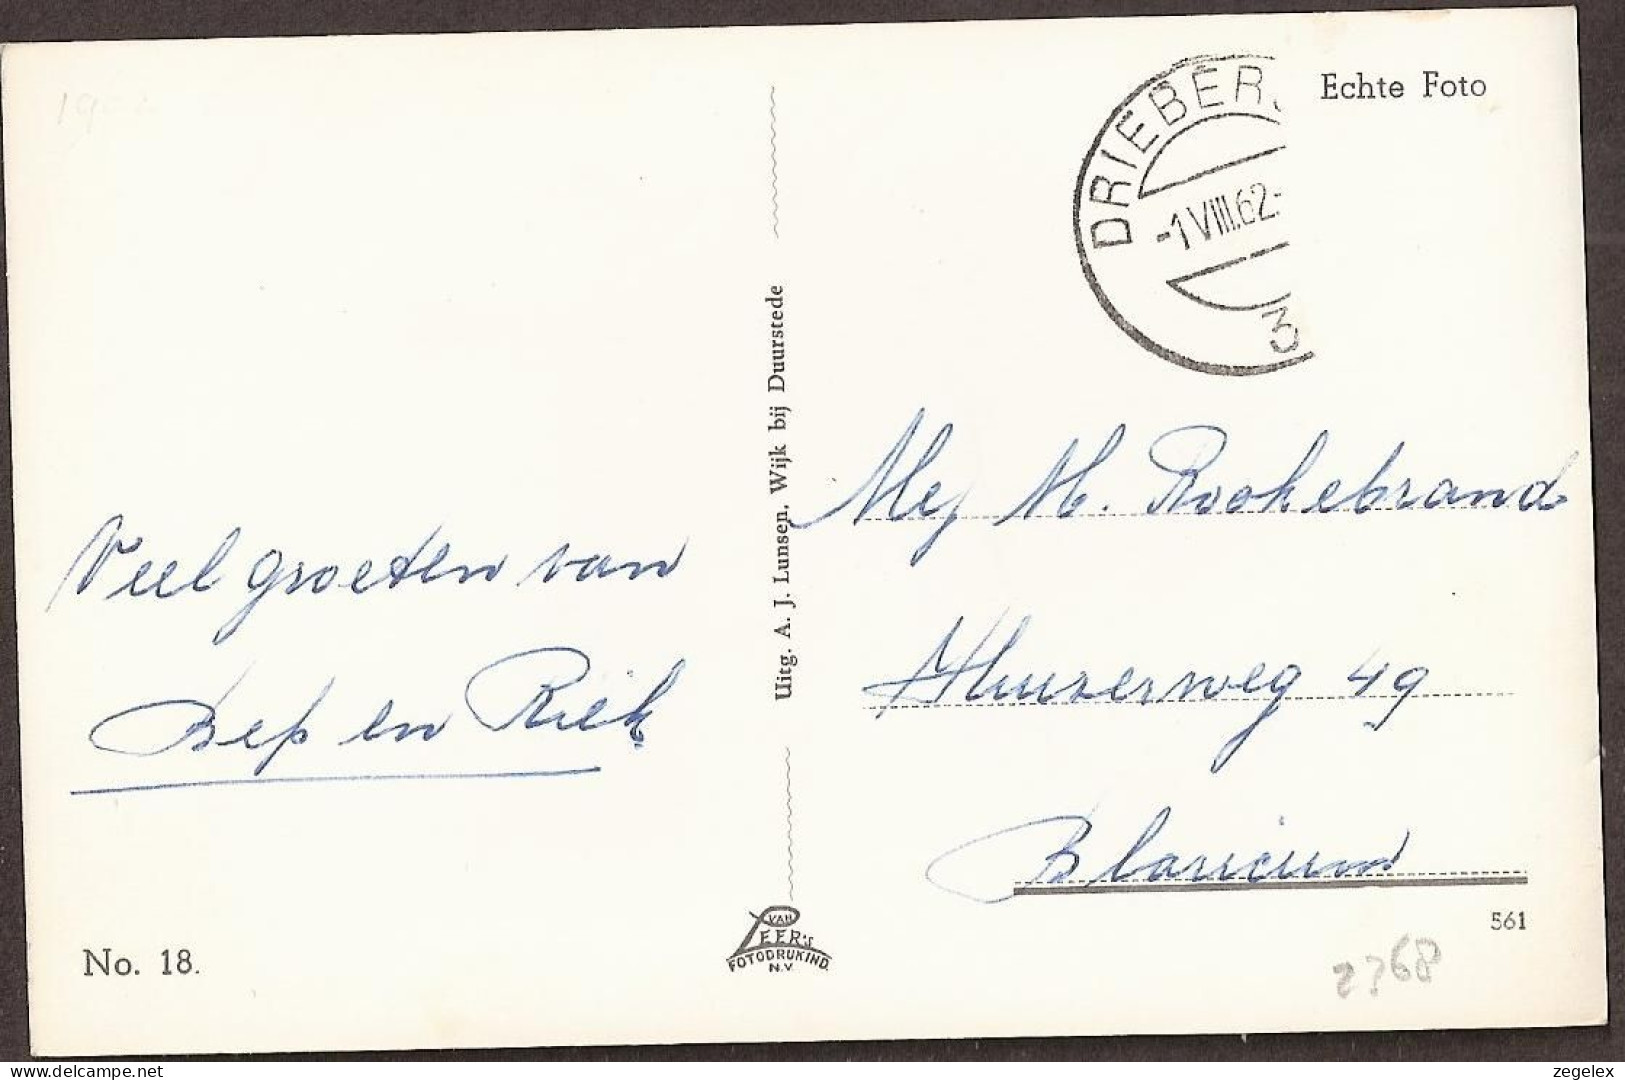 Echte Foto
DRIEBER
-1 VIII.62-
3
Veel groeten van
Bep en Riek
Uitg. A. J. Lunsen, Wijk bij Duurstede
Mej M. Rookebrand
Huizerweg 49
Blaricum
561
No. 18.
VAN
LEER'S
FOTODRUKIND.
N.V.
2768
delcampe.net
zegelex